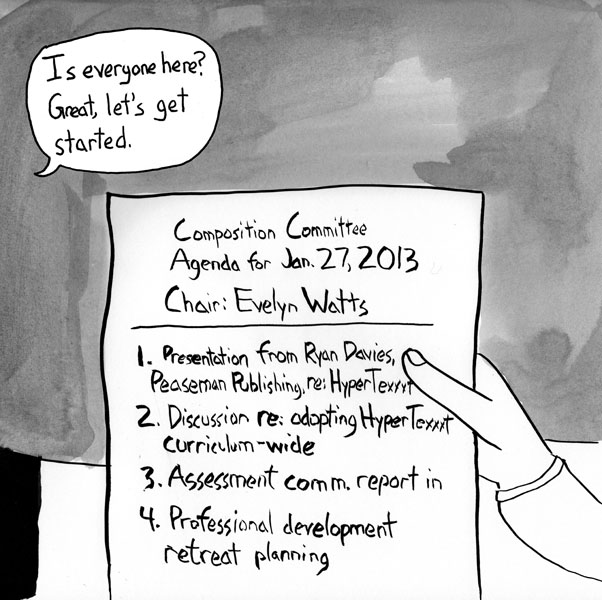 Is everyone here?
Great, let's get
started.
Composition Committee
Agenda for Jan. 27, 2013
Chair: Evelyn Watts
1. Presentation from Ryan Davies,
Peaseman Publishing, re: HyperTexxxt
2. Discussion re: adopting HyperTexxxt
curriculum-wide
3. Assessment comm. report in
4. Professional development
retreat planning